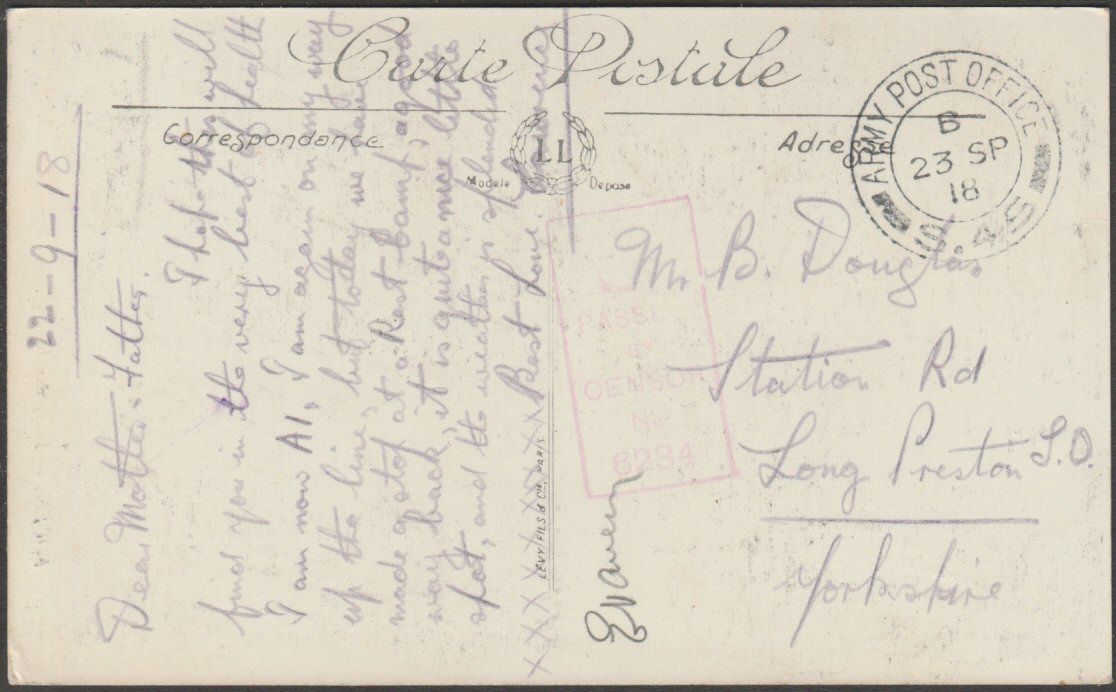 Carte Postale
Correspondance
Adresse
LL
Modele Depose
ARMY POST OFFICE
B
23 SP
18
S.45
22-9-18
Dear Mother & Father,
I hope this will
find you in the very best of health
I am now A1, I am again on my way
up the line, but today we have
made a stop at a Rest Camp, a good
way back, it is quite a nice little
spot, and the weather is splendid
Best Love
xxxxxxxxxx
LEVY FILS & Cie, PARIS
PASSED
CENSOR
No
6234
Mr B. Douglas
Station Rd
Long Preston S.O.
Yorkshire